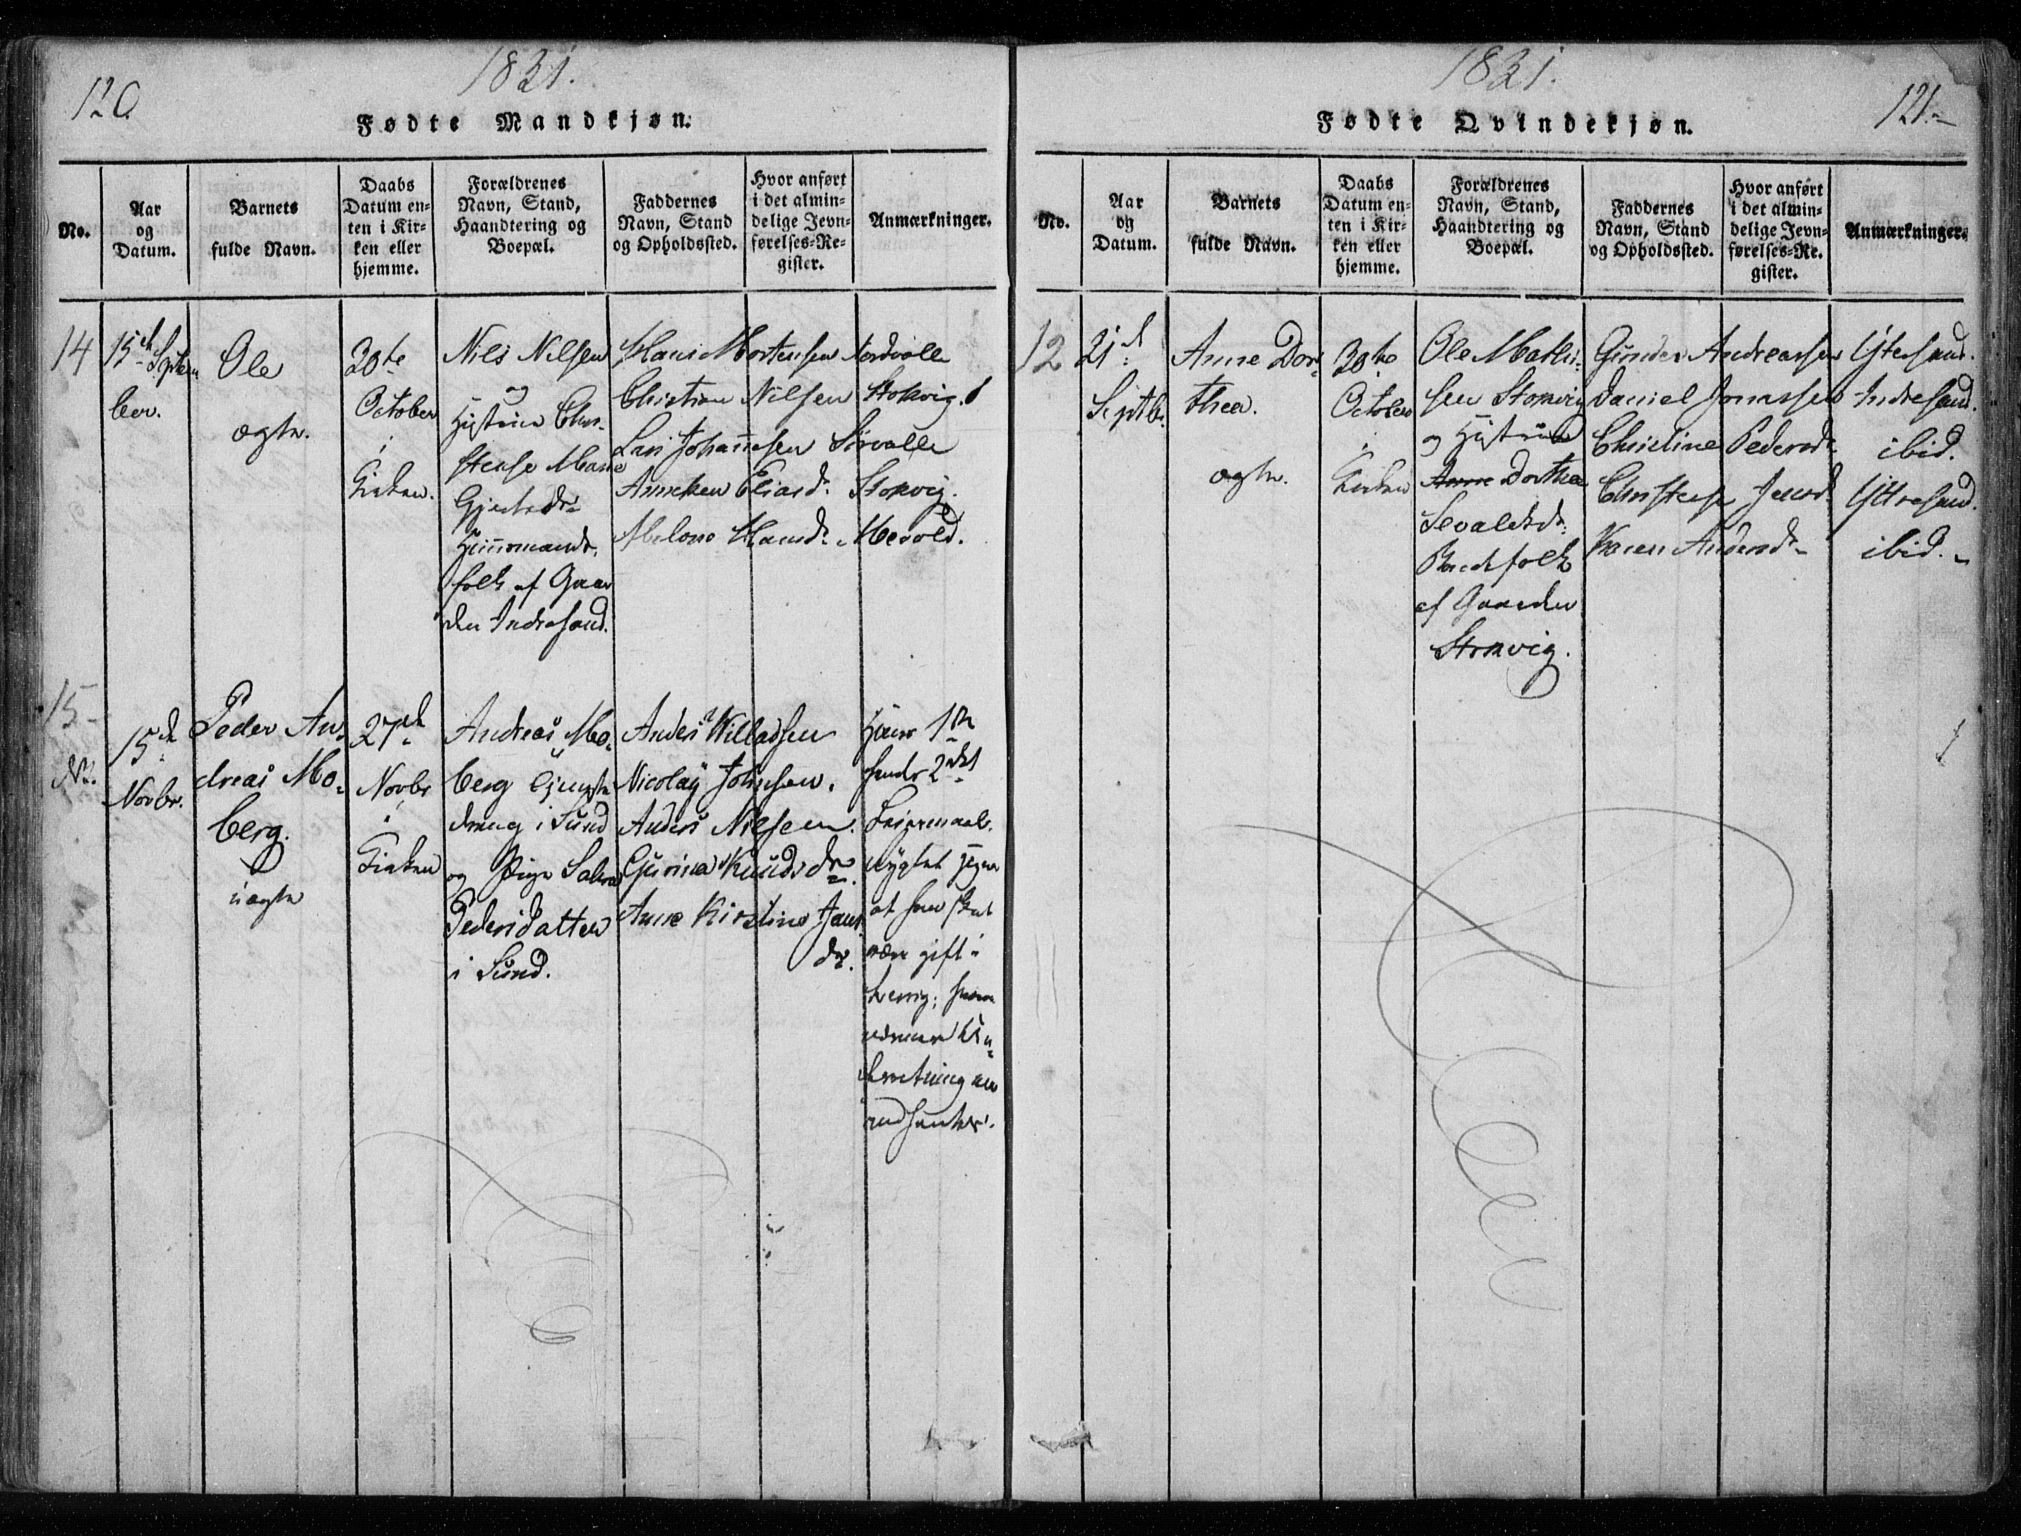 120
1831.
Fødte Mandkjøn.
No.
Aar
og
Datum.
Barnets
fulde Navn.
Daabs
Datum en-
ten i Kir-
ken eller
hjemme.
Forældrenes
Navn, Stand,
Haandtering og
Boepæl.
Faddernes
Navn, Stand
og Opholdssted.
Hvor anført
i det almin-
delige Jevn-
førelses-Re-
gister.
Anmærkninger.
14
15de Septem
ber.
Ole
ægte.
30te
October
i
Kirken.
Niels Nilsen
og
Hustrue Chri-
stense Marie
Huusmands-
folk af Gaar
den Indresand.
Hans Mortensen Nordvolle
Christian Nilsen Stokvig.
Lars Johannesen Sørvolle
Anneken Eliasd. Stokvig.
Hansd. Mevold.
15
15de
Novbr.
Peder An-
dreas Mo-
berg.
uægte
27de
Novbr
i
Kirken
Andreas Mo-
berg
dreng i Sund
og Pige
Pedersdatter
i Sund.
Anders Willadsen
Nicolay Johnsen.
Anders Nilsen.
Gurina Knudsdr.
Anne Kirstine Jans
dr.
Hans 1ste
hendes 2det
Leiermaal.
at han skal
være gift i
121.
1831.
Fødte Qvindekjøn.
No.
Aar
og
Datum.
Barnets
fulde Navn.
Daabs
Datum en-
ten i Kir-
ken eller
hjemme.
Forældrenes
Navn, Stand,
Haandtering og
Boepæl.
Faddernes
Navn, Stand
og Opholdssted.
Hvor anført
i det almin-
delige Jevn-
førelses-Re-
gister.
Anmærkninger.
12
21de
Septbr.
Anne Dor-
thea.
ægte.
30te
October
i
Kirken
Ole Mathi-
sen Stokvig
og Hustrue
Anne Dorthea
Sevaldsd:
Bondefolk
af Gaarden
Stokvig.
Gunder Andreassen Yttersand.
Daniel Jonassen Indresand.
Christine Pedersd. ibid.
Christense Jensd. Yttresand.
Karen Andersd. ibid.